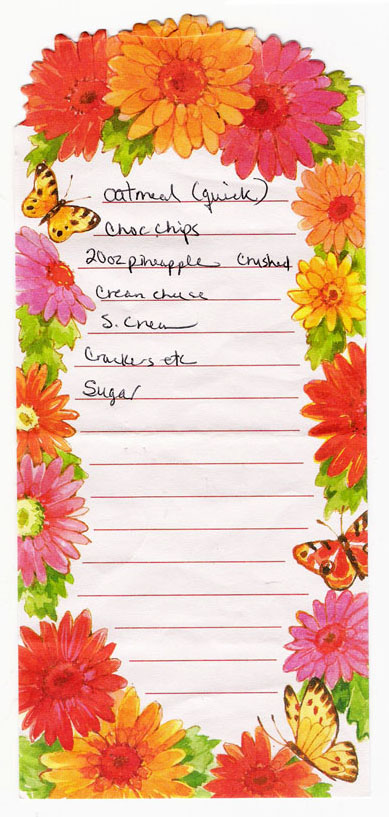 oatmeal (quick)
choc chips
20oz pineapple crushed
Cream cheese
S. Cream
Crackers etc
Sugar